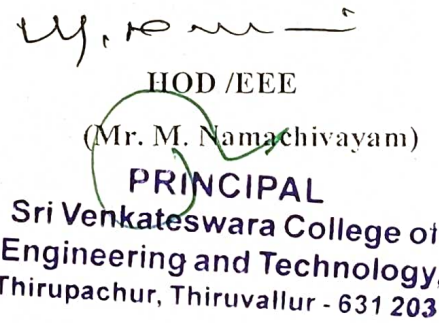 HOD /EEE
(Mr. M. Namachivayam)
PRINCIPAL
Sri Venkateswara College of
Engineering and Technology,
Thirupachur, Thiruvallur - 631 203